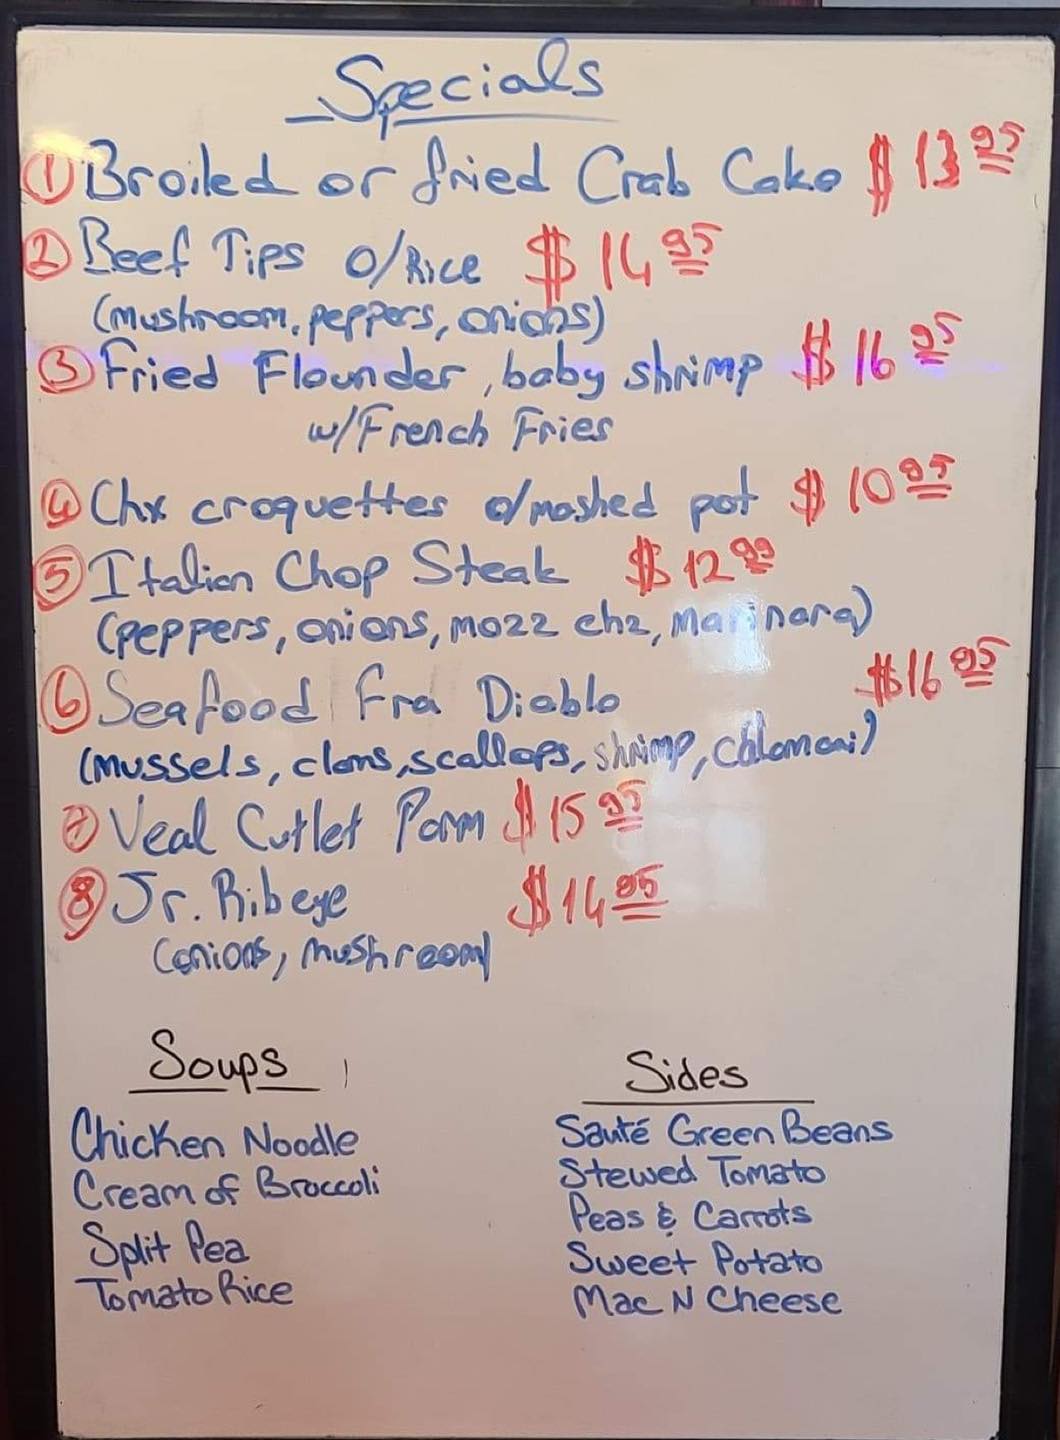 Specials
① Broiled or fried Crab Cake $ 13 95
② Beef Tips o/Rice $ 14 95
(mushroom, peppers, onions)
③ Fried Flounder, baby shrimp $ 16 95
w/French Fries
④ Chx croquettes o/mashed pot $ 10 95
⑤ Italian Chop Steak $ 12 99
(peppers, onions, mozz chz, marinara)
⑥ Seafood Fra Diablo $16 95
(mussels, clams, scallops, shrimp, calamari)
⑦ Veal Cutlet Parm $ 15 95
⑧ Jr. Ribeye $ 14 95
(onions, mushroom)
Soups
Chicken Noodle
Cream of Broccoli
Split Pea
Tomato Rice
Sides
Sauté Green Beans
Stewed Tomato
Peas & Carrots
Sweet Potato
Mac N Cheese